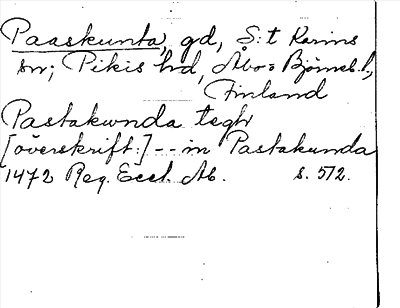 Paaskunta, gd, S:t Karins
sn; Pikis hd, Åbo o Björneb. l.,
Finland
Pastakwnda tegh
[överskrift:] -- in Pastakunda
1472 Reg. Eccl. Ab. s. 572.